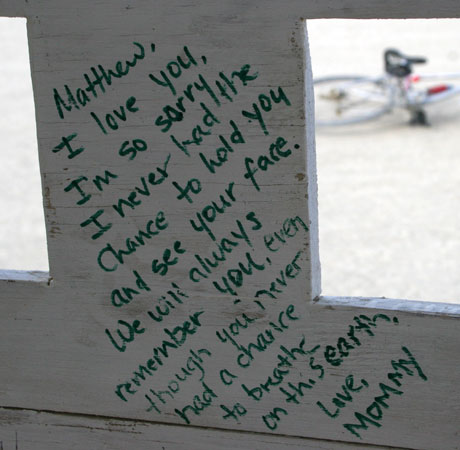 Matthew,
I love you,
I'm so sorry
I never had the
chance to hold you
and see your face.
We will always
remember you, even
though you never
had a chance
to breathe
on this earth.
Love,
MOMMY